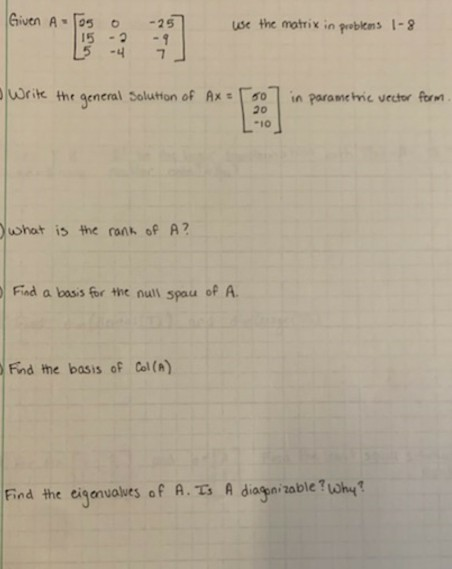 Given A = [25 0 -25 use the matrix in problems 1-8
15 -2 -9
5 -4 7]
Write the general solution of Ax = [50 in parametric vector form.
20
-10]
what is the rank of A?
Find a basis for the null spau of A.
Find the basis of Col(A)
Find the eigenvalues of A. Is A diagonizable? Why?